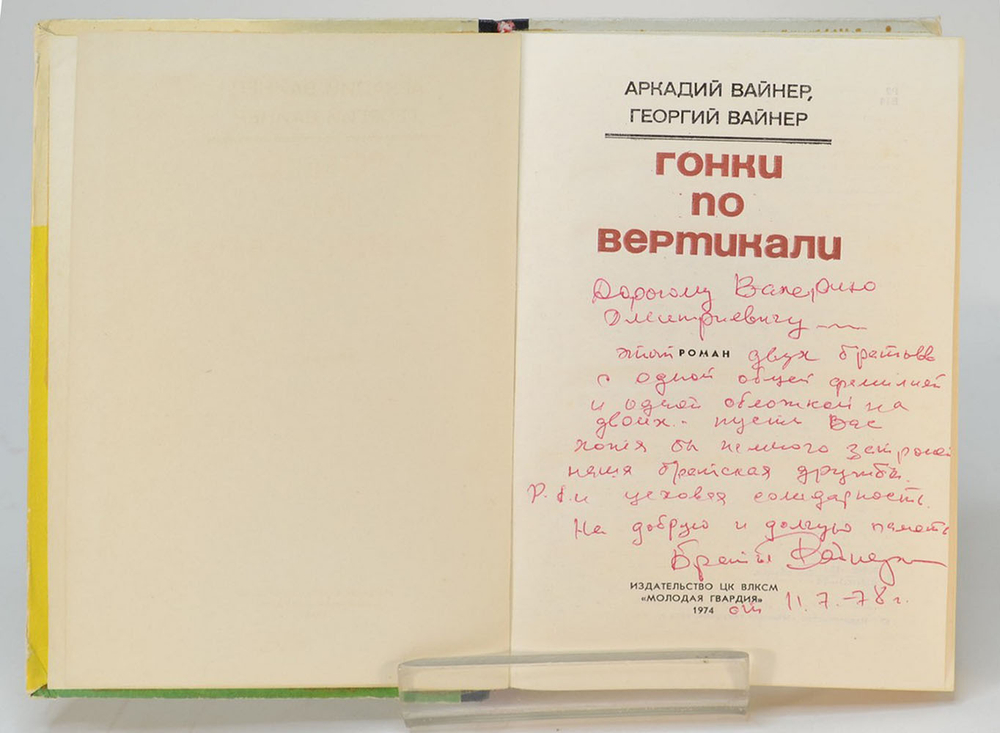 АРКАДИЙ ВАЙНЕР,
ГЕОРГИЙ ВАЙНЕР
ГОНКИ
ПО
ВЕРТИКАЛИ
Дорогому Валерию
Дмитриевичу
этот РОМАН двух братьев
с одной общей фамилией
и одной обложкой на
двоих - пусть Вас
хотя бы немного затронет
наша братская дружба.
P.S. и цеховая солидарность.
На добрую и долгую память
Братья Вайнеры
ИЗДАТЕЛЬСТВО ЦК ВЛКСМ
«МОЛОДАЯ ГВАРДИЯ»
1974 от 11.7.-78 г.